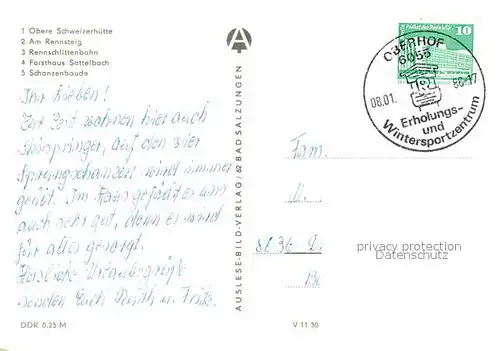 1 Obere Schweizerhütte
2 Am Rennsteig
3 Rennschlittenbahn
4 Forsthaus Sattelbach
5 Schanzenbaude
Ihr Lieben!
Zur Zeit wohnen hier auch
Skispringer, auf den vier
Sprungschanzen wird immer
geübt. Im Haus gefällt es uns
auch sehr gut, denn es wird
für alles gesorgt.
Herzliche Urlaubsgrüße
senden Euch Ruth u. Fritz.
DDR 0,25 M
AUSLESE-BILD-VERLAG 62 BAD SALZUNGEN
V 11 50
10
OBERHOF
6055
08.01.
86-17
Erholungs-
und
Wintersportzentrum
Fam.
privacy protection
Datenschutz